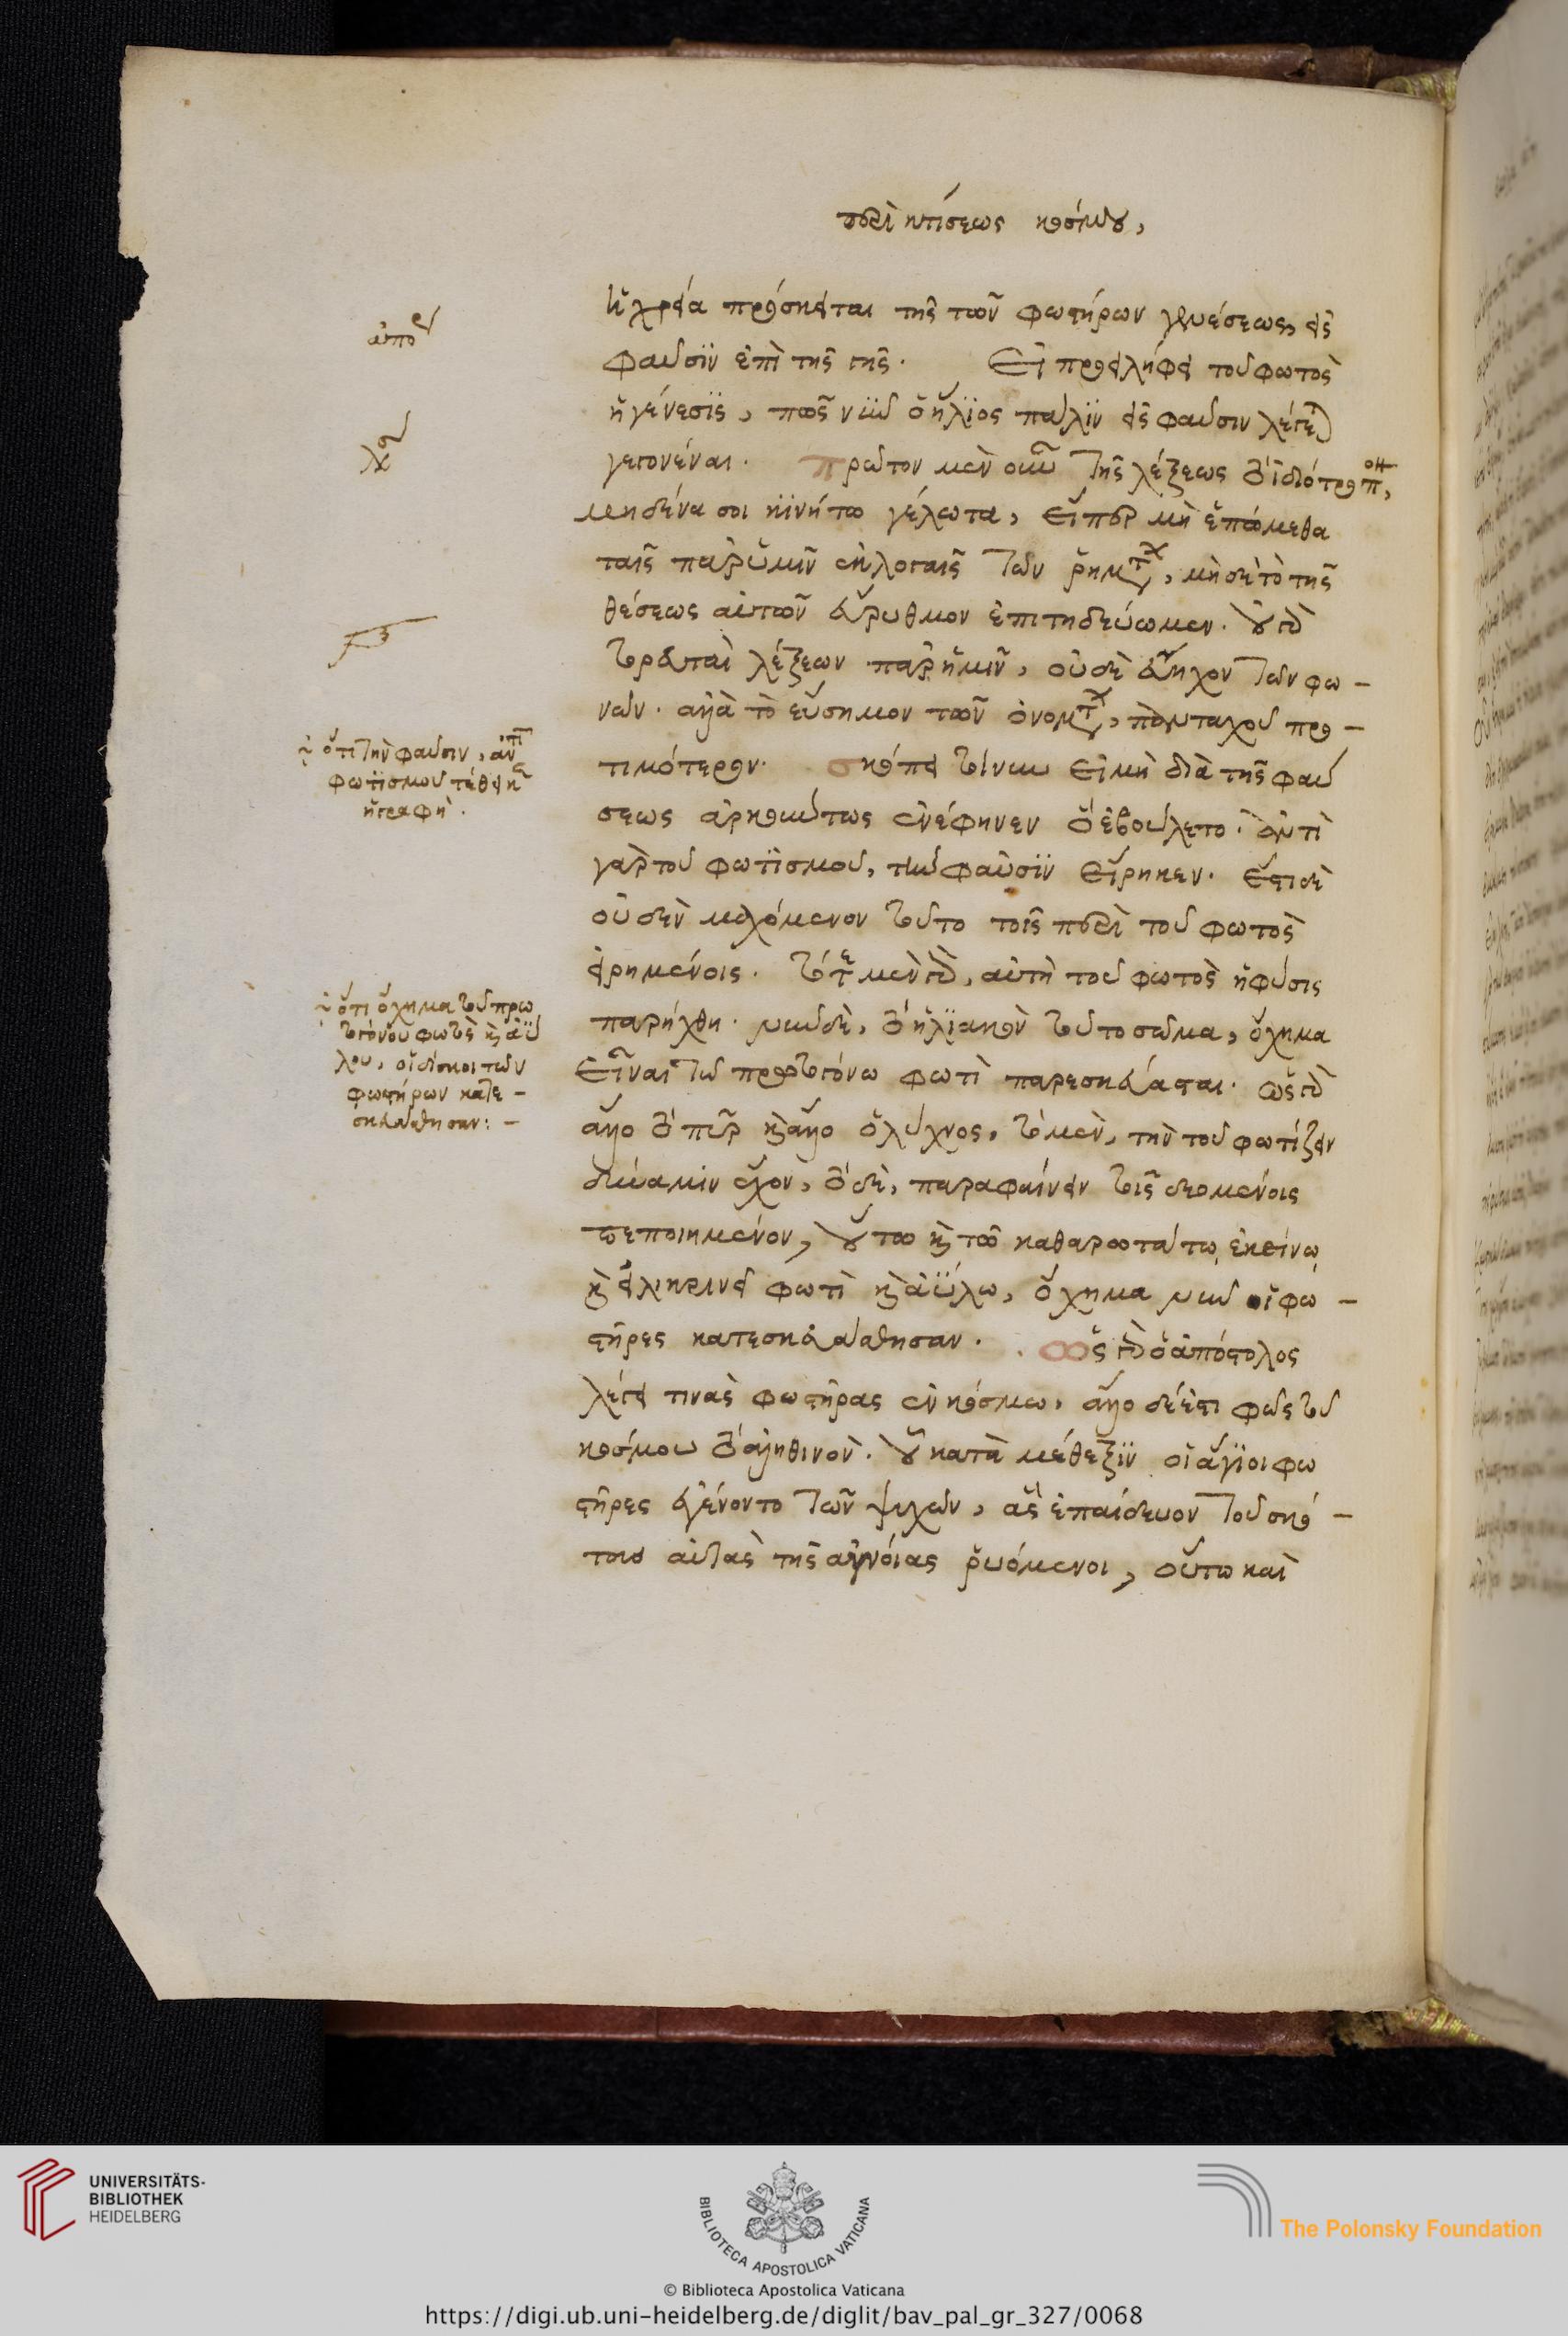 περὶ κτίσεως κόσμου,
ἡ χρεία πρόσκειται τῆς τῶν φωστήρων γενέσεως, εἰς
φαῦσϊν ἐπὶ τῆς γῆς. Εἰ προειλήφει τοῦ φωτὸς
ἡ γένεσϊς, πῶς νῦν ὁ ἥλϊος πάλϊν εἰς φαῦσιν λέγεται
γεγονέναι. πρῶτον μὲν οὖν τῆς λέξεως τὸ ἰδιότροπον,
μηδένα σοι κϊνήτω γέλωτα, εἴπερ μὴ ἑπώμεθα
ταῖς παρ' ὑμῖν ἐκλογαῖς τῶν ῥημάτων, μὴ δὲ τὸ τῆς
θέσεως αὐτῶν εὔρυθμον ἐπιτηδεύωμεν. οὐ γὰρ
τορευταὶ λέξεων παρ' ἡμῖν, οὐδὲ εὔηχον τῶν φω-
νῶν. ἀλλὰ τὸ εὔσημον τῶν ὀνομάτων, πανταχοῦ προ-
τιμότερον. σκόπει τοίνυν εἰ μὴ διὰ τῆς φαύ
σεως ἀρκούντως ἐνέφηνεν ὃ ἐβούλετο. ἀντὶ
γὰρ τοῦ φωτϊσμοῦ, τὴν φαῦσϊν εἴρηκεν. ἔστι δὲ
οὐδὲν μαχόμενον τοῦτο τοῖς περὶ τοῦ φωτὸς
εἰρημένοις. τότε μὲν γὰρ, αὐτὴ τοῦ φωτὸς ἡ φύσις
παρήχθη. νῦν δὲ, τὸ ἡλϊακὸν τοῦτο σῶμα, ὄχημα
εἶναι τῶ πρωτογόνω φωτὶ παρεσκεύασται. ὡς γὰρ
ἄλλο τὸ πῦρ καὶ ἄλλο ὁ λύχνος, τὸ μὲν, τὴν τοῦ φωτίζειν
δύναμιν ἔχον, τὸ δὲ, παραφαίνειν τοῖς δεομένοις
πεποιημένον, οὕτω καὶ τῶ καθαρωτάτω ἐκείνω
καὶ εἰλικρινεῖ φωτὶ καὶ ἀΰλω, ὄχημα νῦν οἱ φω-
στῆρες κατεσκευάσθησαν. ὡς γὰρ ὁ ἀπόστολος
λέγει τινὰς φωστῆρας ἐν κόσμω, ἄλλο δέ ἐστι φῶς τοῦ
κόσμου τὸ ἀληθινὸν. οὗ κατὰ μέθεξϊν οἱ ἅγϊοι φω
στῆρες ἐγένοντο τῶν ψυχῶν, ἃς ἐπαίδευον τοῦ σκό-
τους αὐτὰς τῆς ἀγνοίας ῥυόμενοι, οὕτω καὶ
ὅτι τὴν φαῦσιν, ἀντὶ
φωτϊσμοῦ τέθεικεν
ἡ γραφή.
ὅτι ὄχημα τοῦ πρω
τογόνου φωτὸς καὶ ἀΰ
λου, οἱ δίσκοι τῶν
φωστήρων κατε-
σκευάσθησαν:-
UNIVERSITÄTS-
BIBLIOTHEK
HEIDELBERG
BIBLIOTECA APOSTOLICA VATICANA
The Polonsky Foundation
© Biblioteca Apostolica Vaticana
https://digi.ub.uni-heidelberg.de/diglit/bav_pal_gr_327/0068